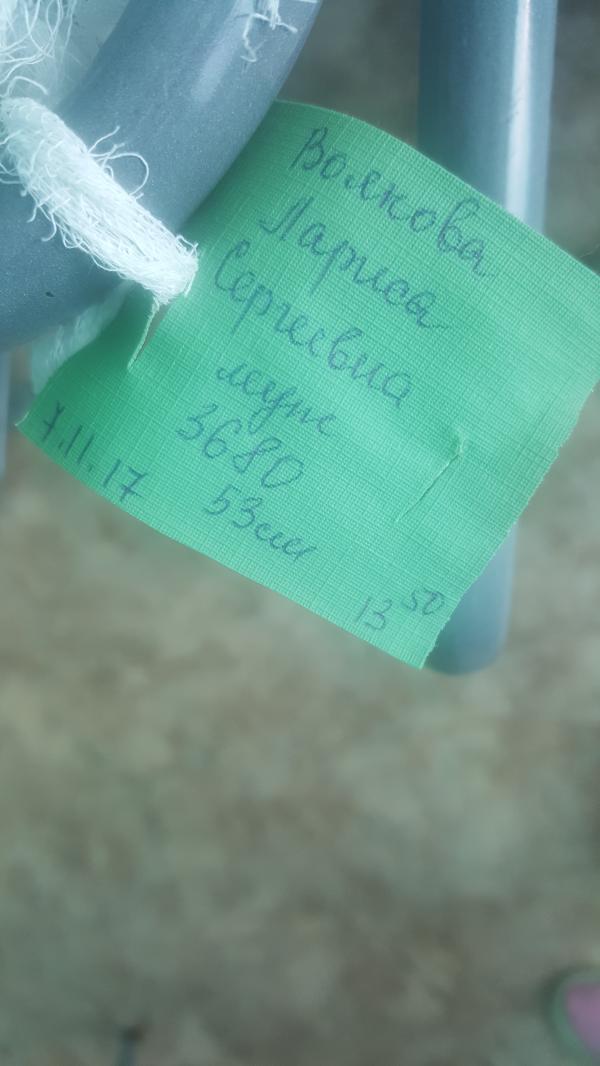 Волкова
Лариса
Сергеевна
муж
3680
7.11.17 53см
13 50